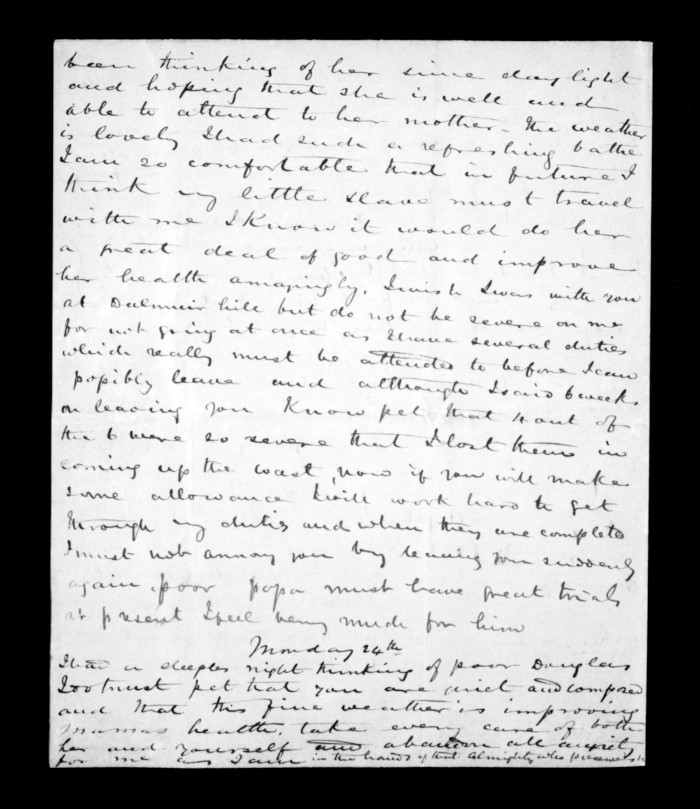 been thinking of her since day light
and hoping that she is well and
able to attend to her mother - the weather
is lovely I had such a refreshing bathe
I am so comfortable that in future I
think my little slave must travel
with me I know it would do her
a great deal of good and improve
her health amazingly. I wish I was with you
at Dalmuir hill but do not be severe on me
for not going at once as I have several duties
which really must be attended to before I can
possibly leave and although I said 6 weeks
on leaving you know pet that 4 out of
the 6 were so severe that I lost them in
coming up the coast, now if you will make
some allowance I will work hard to get
through my duties and when they are completed
I must not annoy you by leaving you suddenly
again, poor papa must have great trials
at present I feel very much for him
Monday 24th
I had a sleepless night thinking of poor Douglas
I do trust pet that you are quiet and composed
and that this fine weather is improving
mamas health. take every care of both
her and yourself and abandon all anxiety
for me as I am in the hands of that Almighty who preserves